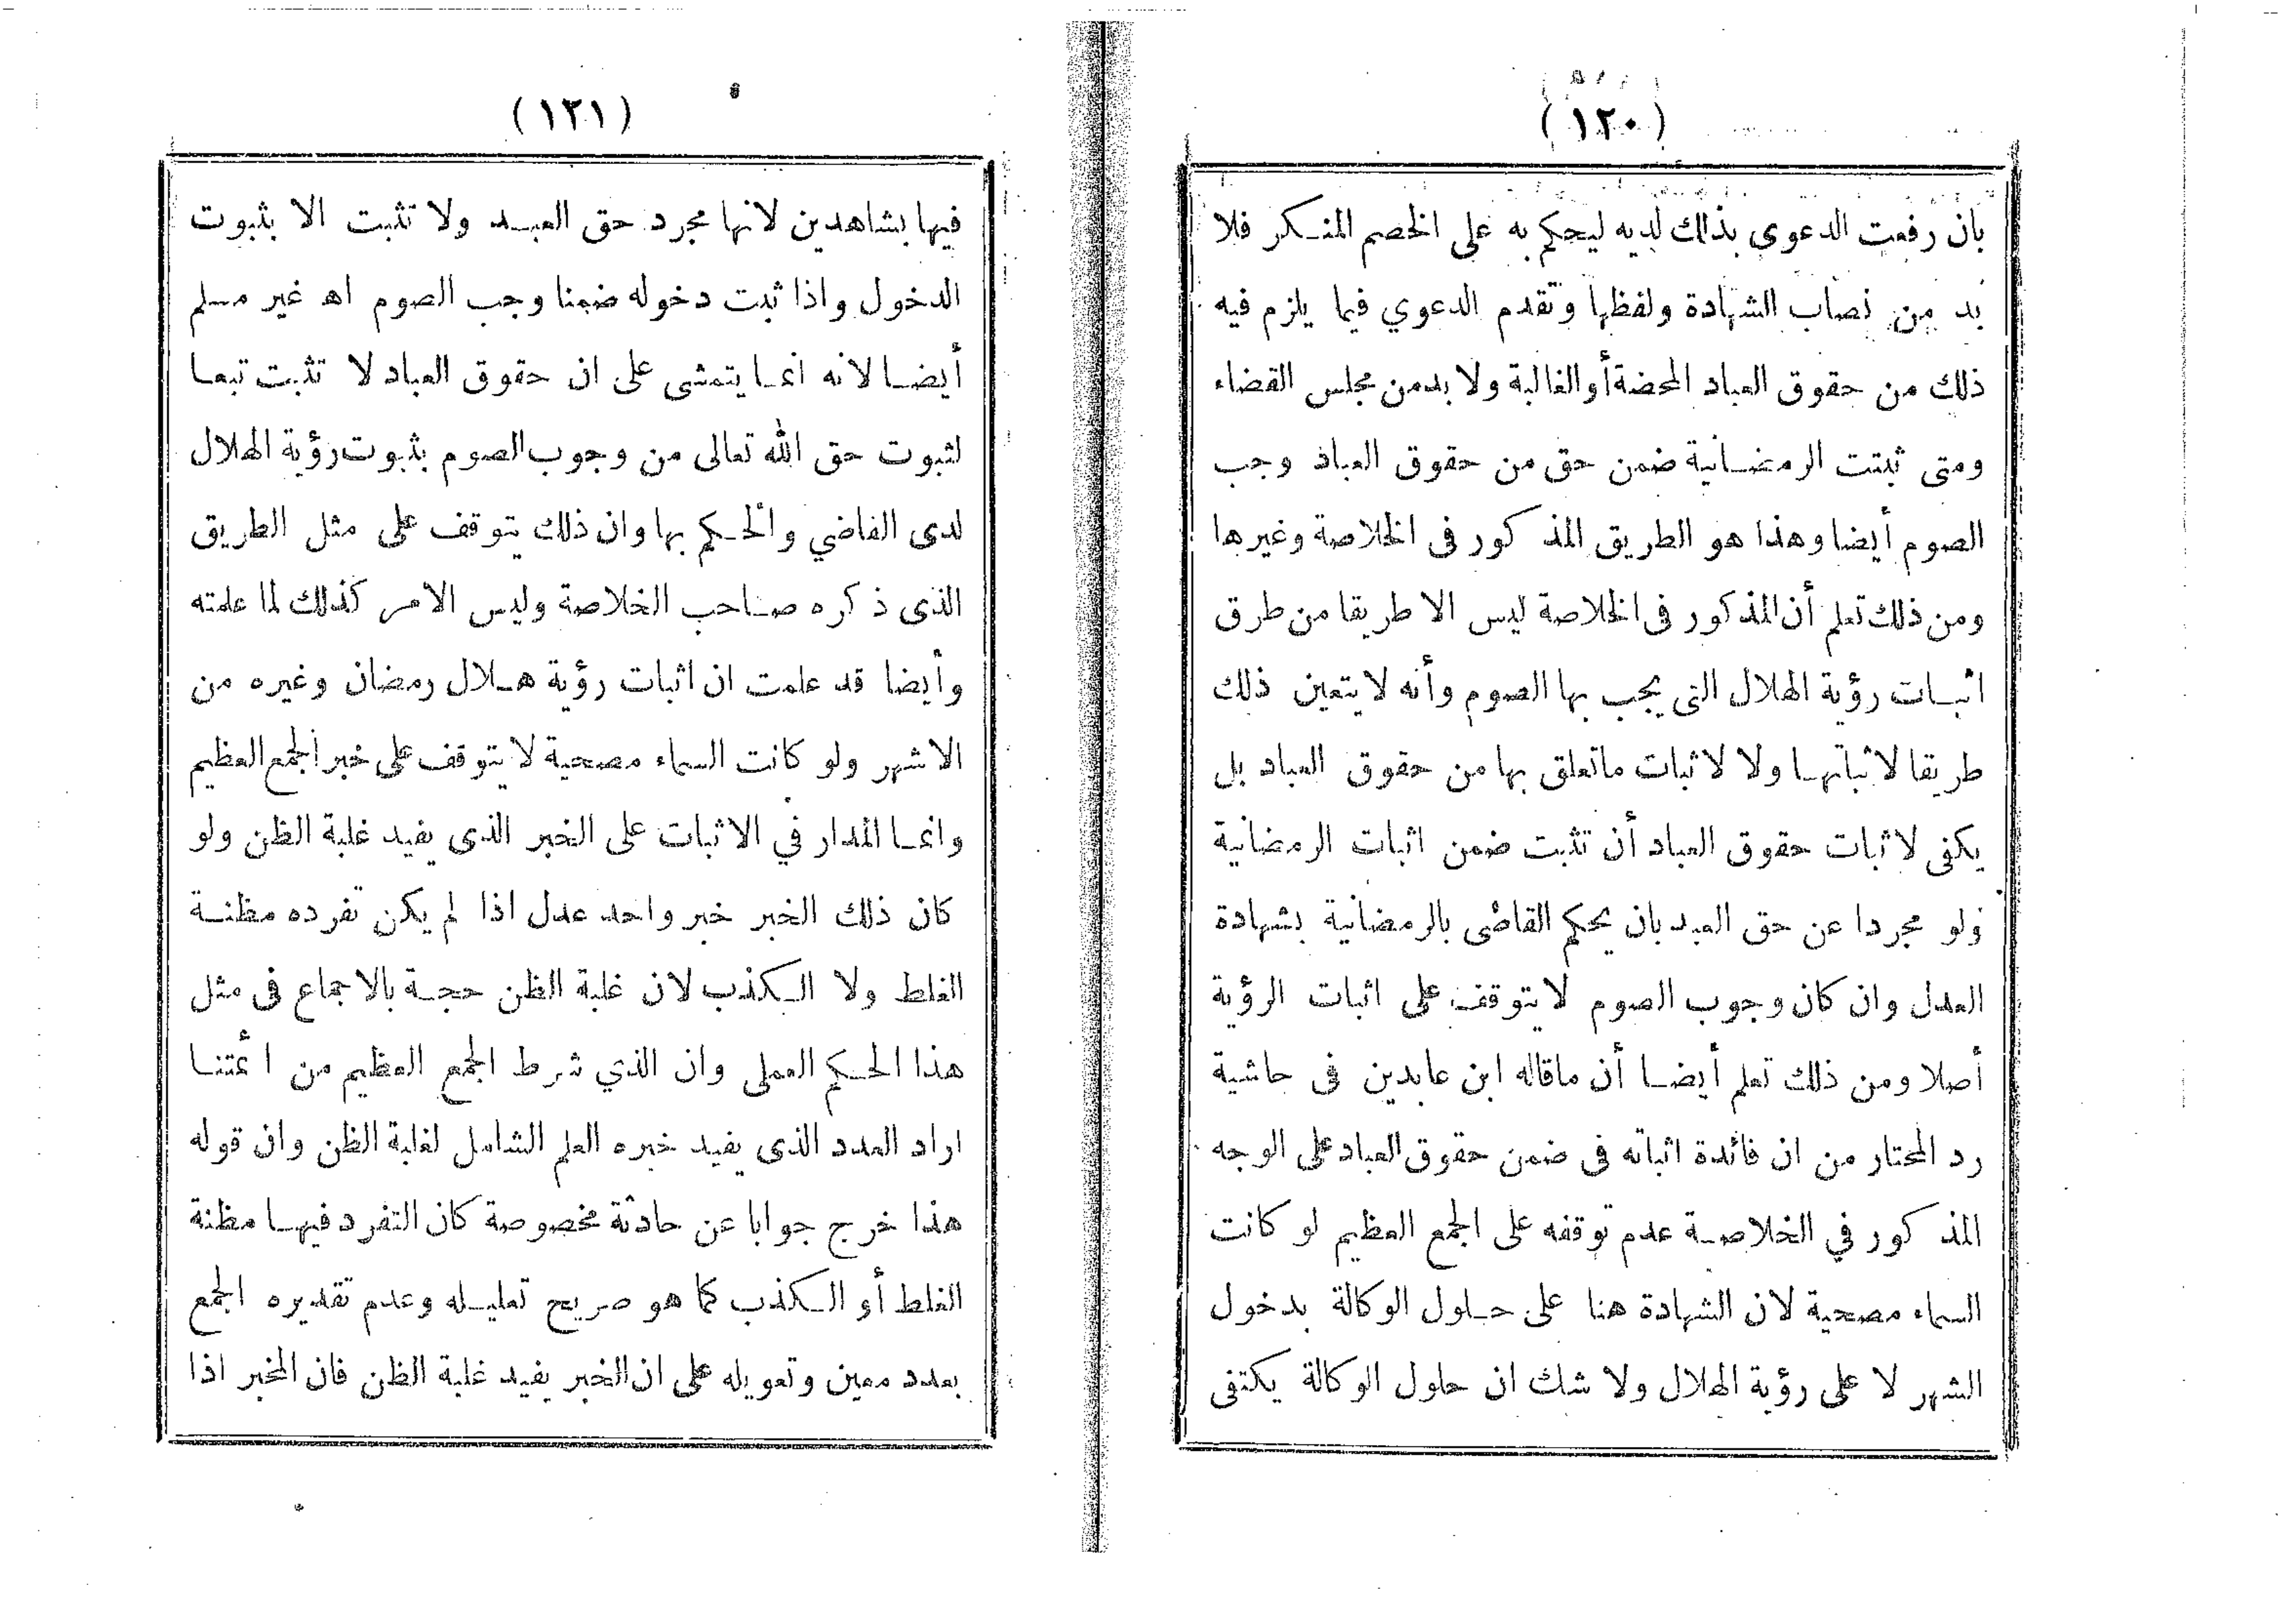 (١٢٠)
بان رفعت الدعوى بذلك لديه ليحكم به على الخصم المنكر فلا
بد من نصاب الشهادة ولفظها وتقدم الدعوي فيما يلزم فيه
ذلك من حقوق العباد المحضة أو الغالبة ولا بد من مجلس القضاء
ومتى ثبتت الرمضانية ضمن حق من حقوق العباد وجب
الصوم أيضا وهذا هو الطريق المذكور فى الخلاصة وغيرها
ومن ذلك تعلم أن المذكور فى الخلاصة ليس الا طريقا من طرق
اثبات رؤية الهلال التى يجب بها الصوم وأنه لا يتعين ذلك
طريقا لاثباتها ولا لاثبات ماتعلق بها من حقوق العباد بل
يكفى لاثبات حقوق العباد أن تثبت ضمن اثبات الرمضانية
ولو مجردا عن حق العبد بان يحكم القاضى بالرمضانية بشهادة
العدل وان كان وجوب الصوم لا يتوقف على اثبات الرؤية
أصلا ومن ذلك تعلم أيضا أن ماقاله ابن عابدين فى حاشية
رد المحتار من ان فائدة اثباته فى ضمن حقوق العباد على الوجه
المذكور في الخلاصة عدم توقفه على الجمع العظيم لو كانت
السماء مصحية لان الشهادة هنا على حلول الوكالة بدخول
الشهر لا على رؤية الهلال ولا شك ان حلول الوكالة يكتفى
(١٢١)
فيها بشاهدين لانها مجرد حق العبد ولا تثبت الا بثبوت
الدخول واذا ثبت دخوله ضمنا وجب الصوم اه غير مسلم
أيضا لانه انما يتمشى على ان حقوق العباد لا تثبت تبعا
لثبوت حق الله تعالى من وجوب الصوم بثبوت رؤية الهلال
لدى القاضي والحكم بها وان ذلك يتوقف على مثل الطريق
الذى ذكره صاحب الخلاصة وليس الامر كذلك لما علمته
وأيضا قد علمت ان اثبات رؤية هلال رمضان وغيره من
الاشهر ولو كانت السماء مصحية لا يتوقف على خبر الجمع العظيم
وانما المدار في الاثبات على الخبر الذى يفيد غلبة الظن ولو
كان ذلك الخبر خبر واحد عدل اذا لم يكن تفرده مظنة
الغلط ولا الكذب لان غلبة الظن حجة بالاجماع فى مثل
هذا الحكم العملى وان الذي شرط الجمع العظيم من ائمتنا
اراد العدد الذى يفيد خبره العلم الشامل لغلبة الظن وان قوله
هذا خرج جوابا عن حادثة مخصوصة كان التفرد فيها مظنة
الغلط أو الكذب كما هو صريح تعليله وعدم تقديره الجمع
بعدد معين وتعويله على ان الخبر يفيد غلبة الظن فان المخبر اذا